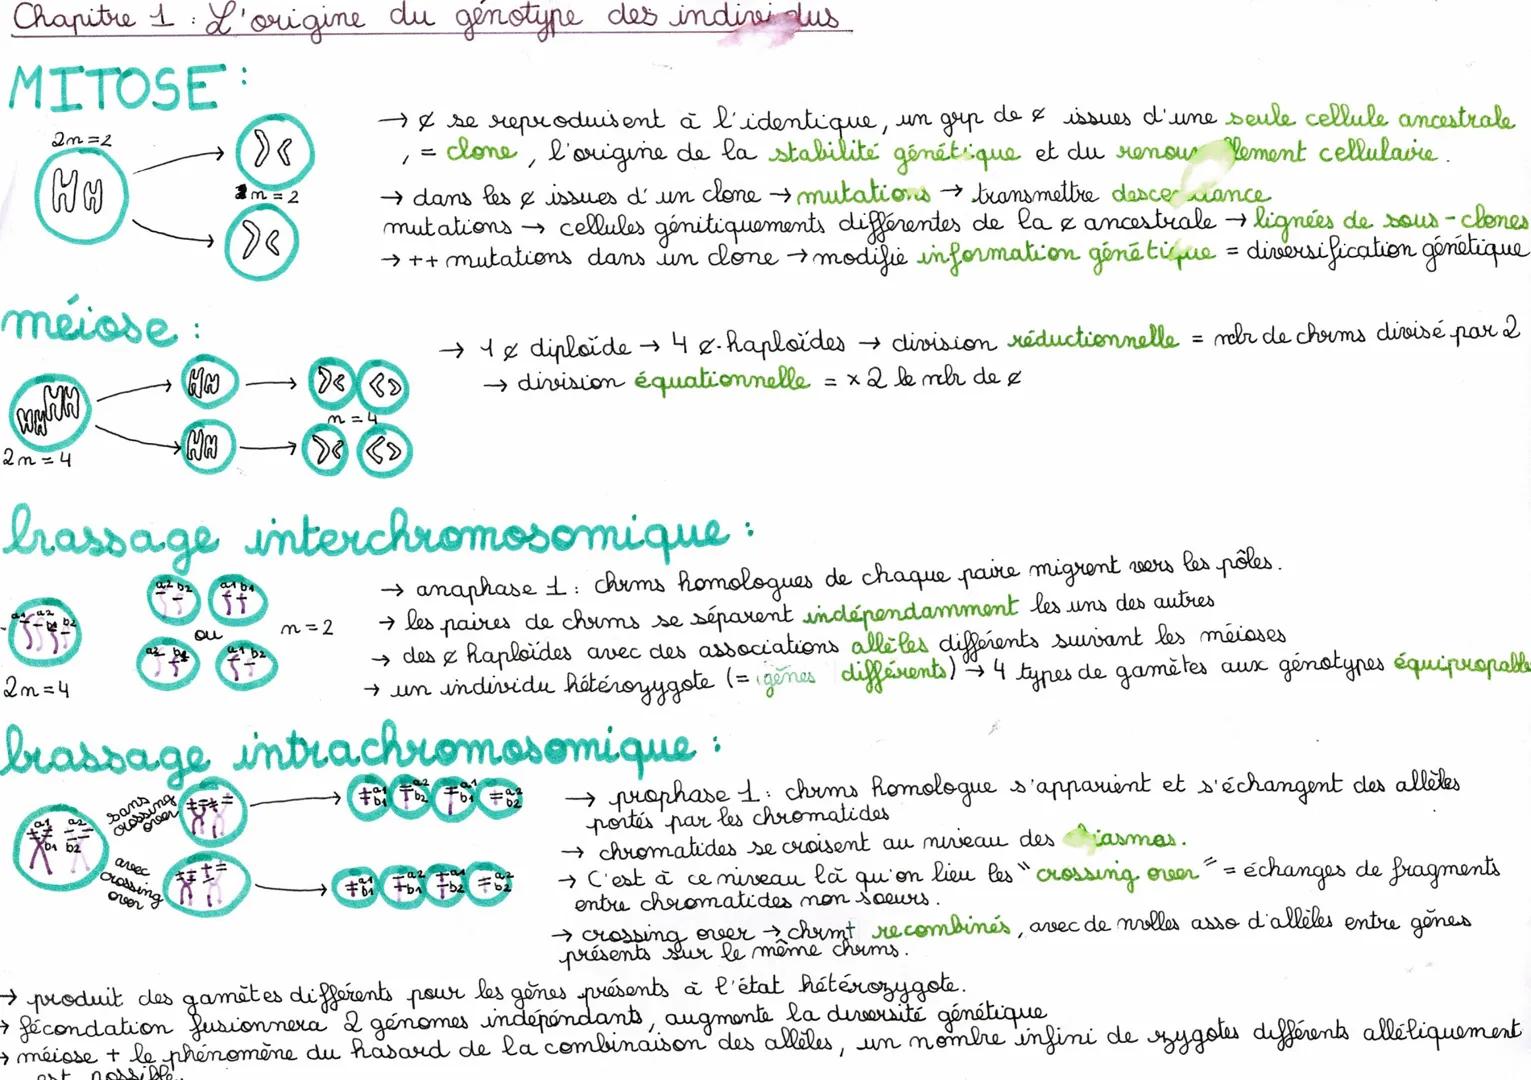 Chapitre 1 : L'origine du génotype des individus
MITOSE :
2n=2
n = 2
→ ¢ se reproduisent à l'identique, un grp de ¢ issues d'une seule cellule ancestrale
, = clone, l'origine de la stabilité génétique et du renouvellement cellulaire.
→ dans les ¢ issues d'un clone → mutations → transmettre descendance
mutations → cellules génitiquements différentes de la ¢ ancestrale → lignées de sous-clones
→ ++ mutations dans un clone → modifie information génétique = diversification génétique
méiose :
2n=4
n=4
→ 1 ¢ diploïde → 4 ¢ haploïdes → division réductionnelle = nbr de chrms divisé par 2
→ division équationnelle = x2 le nbr de ¢
brassage interchromosomique :
a1 a2 b1 b2
2n=4
a2 b2 a1 b1
ou
a2 b1 a1 b2
n=2
→ anaphase 1 : chrms homologues de chaque paire migrent vers les pôles.
→ les paires de chrms se séparent indépendamment les uns des autres
→ des ¢ haploïdes avec des associations allèles différents suivant les méioses
→ un individu hétérozygote (= gènes différents) → 4 types de gamètes aux génotypes équipropable
brassage intrachromosomique :
a1 a2
b1 b2
sans crossing over
avec crossing over
a1 b1 a2 b2 a1 b1 a2 b2
a1 b1 a2 b1 a1 b2 a2 b2
→ prophase 1 : chrms homologue s'apparient et s'échangent des allèles
portés par les chromatides
→ chromatides se croisent au niveau des iasmas.
→ C'est à ce niveau là qu'on lieu les "crossing over" = échanges de fragments
entre chromatides non soeurs.
→ crossing over → chrmt recombinés, avec de nvlles asso d'allèles entre gènes
présents sur le même chrms.
→ produit des gamètes différents pour les gènes présents à l'état hétérozygote.
→ fécondation fusionnera 2 génomes indépendants, augmente la diversité génétique
→ méiose + le phénomène du hasard de la combinaison des allèles, un nombre infini de zygotes différents alléliquement
est possible.